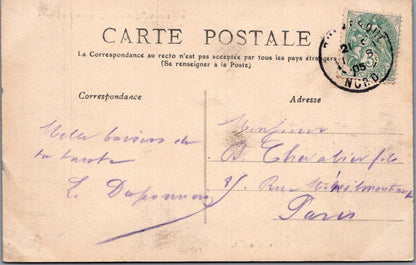 CARTE POSTALE
La Correspondance au recto n'est pas acceptée par tous les pays étrangers
(Se renseigner à la Poste)
NORD
Correspondance
Mille baisers de
ta tante
L.
Adresse
Monsieur
Chevalier fils
Rue Ménilmontant
Paris